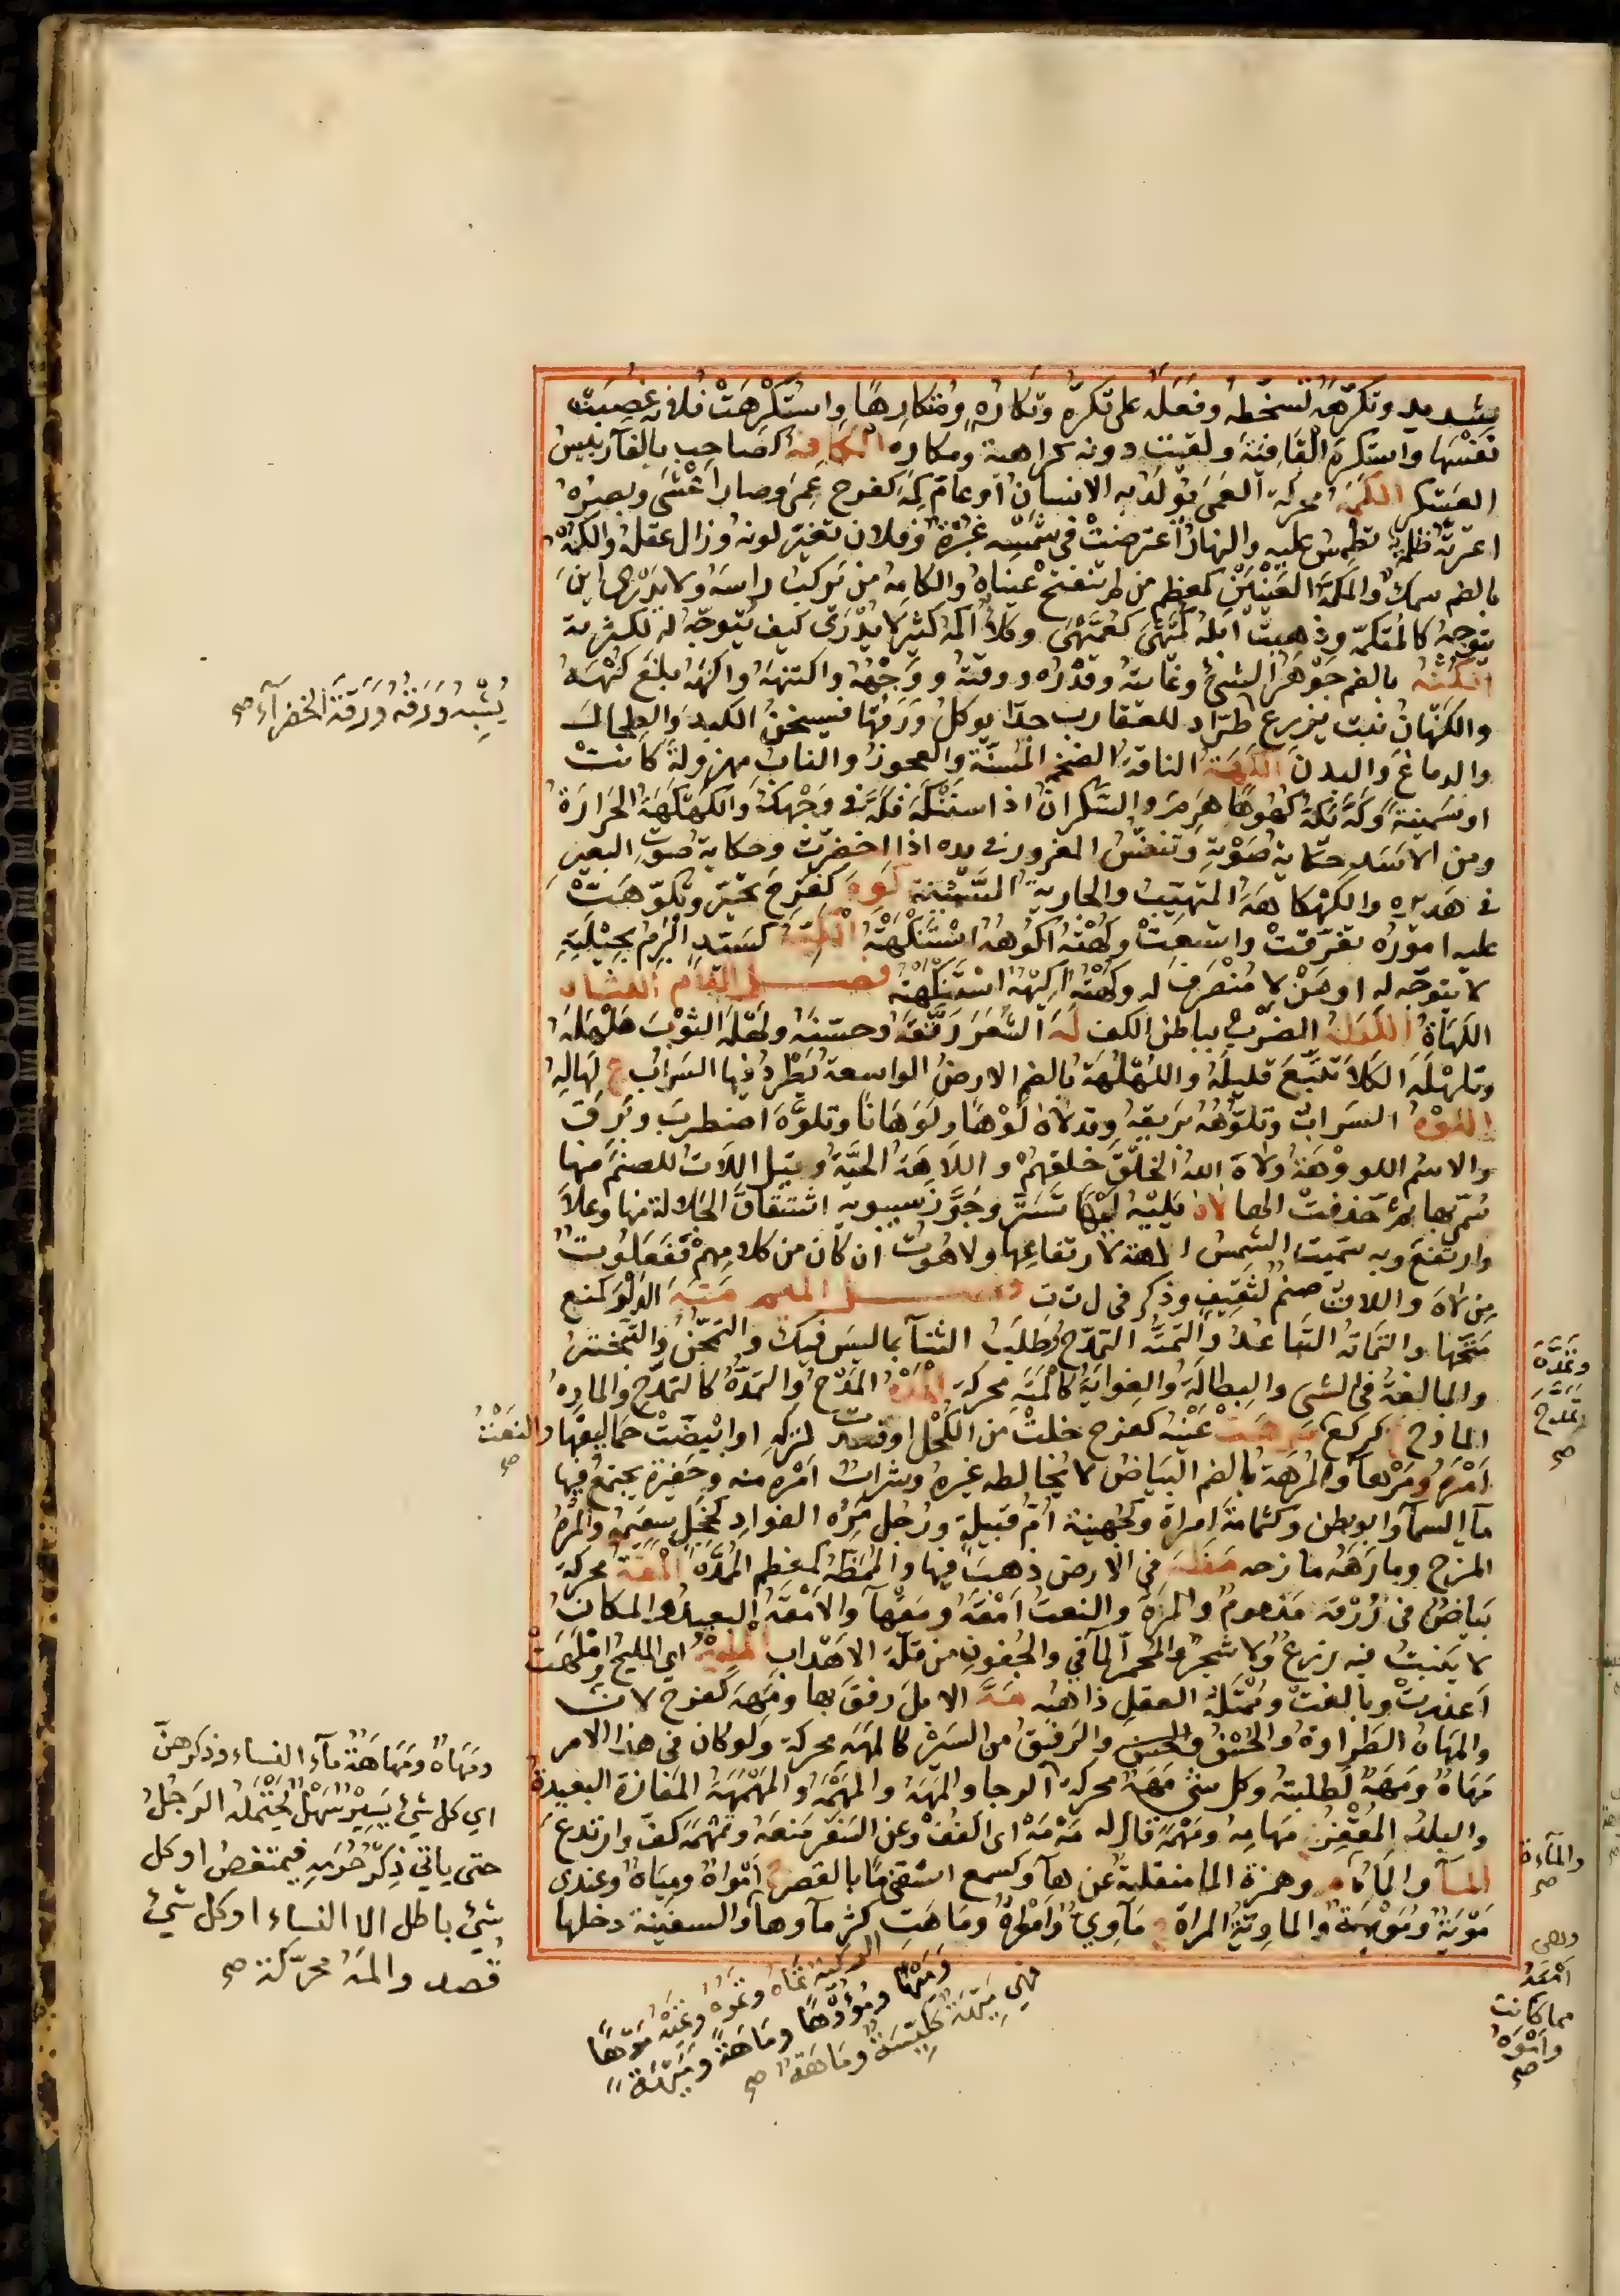 شديد وتكرهه تسخطه وفعله على تكره وتكاره ومتكارها واستكرهت فلانة غصبت
نفسها واستكره القافية ولقيت دونه كراهية ومكاره الكافه كصاحب بالفا رئيس
العسكر الكمه محركة العمى يولد به الانسان او عام كمه كفرح عمى وصار اعشى وبصره
اعترته ظلمة تطمس عليه والنهار اعترضت في شمسه غبرة وفلان تغير لونه وزال عقله والكمه
بالضم سمك والمكمه العينين كمعظم من لم تنفتح عيناه والكامه من يركب راسه ولا يدري اين
يتوجه كالمتكمه وذهبت ابله كميهى كعميهى وكلا اكمه كثير لا يدرى كيف يتوجه له لكثرته
الكنه بالضم جوهر الشئ وغايته وقدره ووقته ووجهه واكتنهه واكنهه بلغ كنهه
والكنهان نبت يزرع طراد للعقارب جدا يوكل ورقها فيسخن الكبد والطحال
والدماغ والبدن الكهة الناقة الضخمة المسنة والعجوز والناب مهزولة كانت
او سمينة وكه يكه كهوها هرم والسكران اذا استنكه فكه في وجهك والكهكهة الحرارة
ومن الاسد حكاية صوته وتنفس المقرور في يده اذا اخضرت وحكاية صوت البعير
في هديره والكهكاهة المتهيب والجارية السمينة كوه كفرح تحير وتكوهت
عليه اموره تفرقت واتسعت وكهته اكوهه استنكهته الكيه كسيد البرم بحيلته
لا يتوجه له او من لا متصرف له وكهته اكيهه استنكهته فصل اللام اللثاه
اللهاة اللطه الضرب بباطن الكف له الشعر رققه وحسنه ولهله الثوب هلهله
وتلهله الكلا تتبع قليله واللهلهة بالضم الارض الواسعة يطرد فيها السراب ج لهاله
اللوه السراب وتلوهه بريقه وقد لاه لوها ولوهانا وتلوه اضطرب وبرق
والاسم اللووهة ولاه الله الخلق خلقهم واللاهة الحية وقيل اللات للصنم منها
سمى بها ثم حذفت الها لاه يليه ليها تستر وجوز سيبويه اشتقاق الجلالة منها وعلا
وارتفع وبه سميت الشمس الاهة لارتفاعها ولاهوت ان كان من كلامهم ففعلوت
من لاه واللات صنم لثقيف وذكر في ل ت ت فصل الميم مته الدلو كمنع
متحها والتماته التباعد والتمته التمدح وطلب الثنا بما ليس فيك والتمجن والتبختر
والمبالغة في الشى والبطالة والغواية كالمته محركة المده المدح والتمده كالتمدح والماده
المادح ج كركع مرهت عينه كفرح خلت من الكحل او فسدت لتركه او ابيضت حماليقها والنعت
امره ومرها والمرهة بالضم البياض لا يخالطه غيره وشراب امره منه وحفيرة يجتمع فيها
ما السما وابو بطن وكثمامة امراة وكجهينة ام قبيلة ورجل مره الفواد كخجل سقيمه والمزه
المزح ومازهه مازحه مطه في الارض ذهب فيها والممطه كمعظم الممده المقه محركة
بياض في زرقة مذموم والمره والنعت امقه ومقها والامقه البعيد والمكان
لا ينبت فيه زرع ولا شجر والمحمر الماقي والجفون من قلة الاهداب المليه اي المليح واملهت
اعذرت وبالغت وممتله العقل ذاهبه مه الابل رفق بها ومهه كفرح لان
والمهاه الطراوة والحسن والحسن والرفيق من السير كالمهه محركة ولو كان في هذا الامر
مهاه ومهه لطلبته وكل شئ مهه محركة الوجا والمهه والمهمه والمهمهة المفازة البعيدة
والبلد المقفر ج مهامه ومهمه قال له مه مه اى اكفف وعن السفر منعه وتمهمه كف وارتدع
الما والماه م وهمزة الما منقلبة عن ها وكسمع اسقنى ما بالقصر ج امواه ومياه وعندى
مويه ومويهة والماوية المراة ج ماوي وامواه وماهت كثر ماوها والسفينة دخلها
يشبه ورقه ورقة الخضراء صح
وتمده تمدح صح
ومهاه ومهاهة ماء النساء وذكرهن
اي كل شئ يسير سهل يحتمله الرجل
حتى ياتي ذكر حرمه فيمتعض او كل
شئ باطل الا النساء او كل شئ
قصد والمه محركة صح
والماءة صح
وهي امعه مما كانت واموه صح
الركية تماه وتموه وتميه موها
وميها ومؤوها وماهة وميهة
فهي ميهة ككيسة وماهة صح